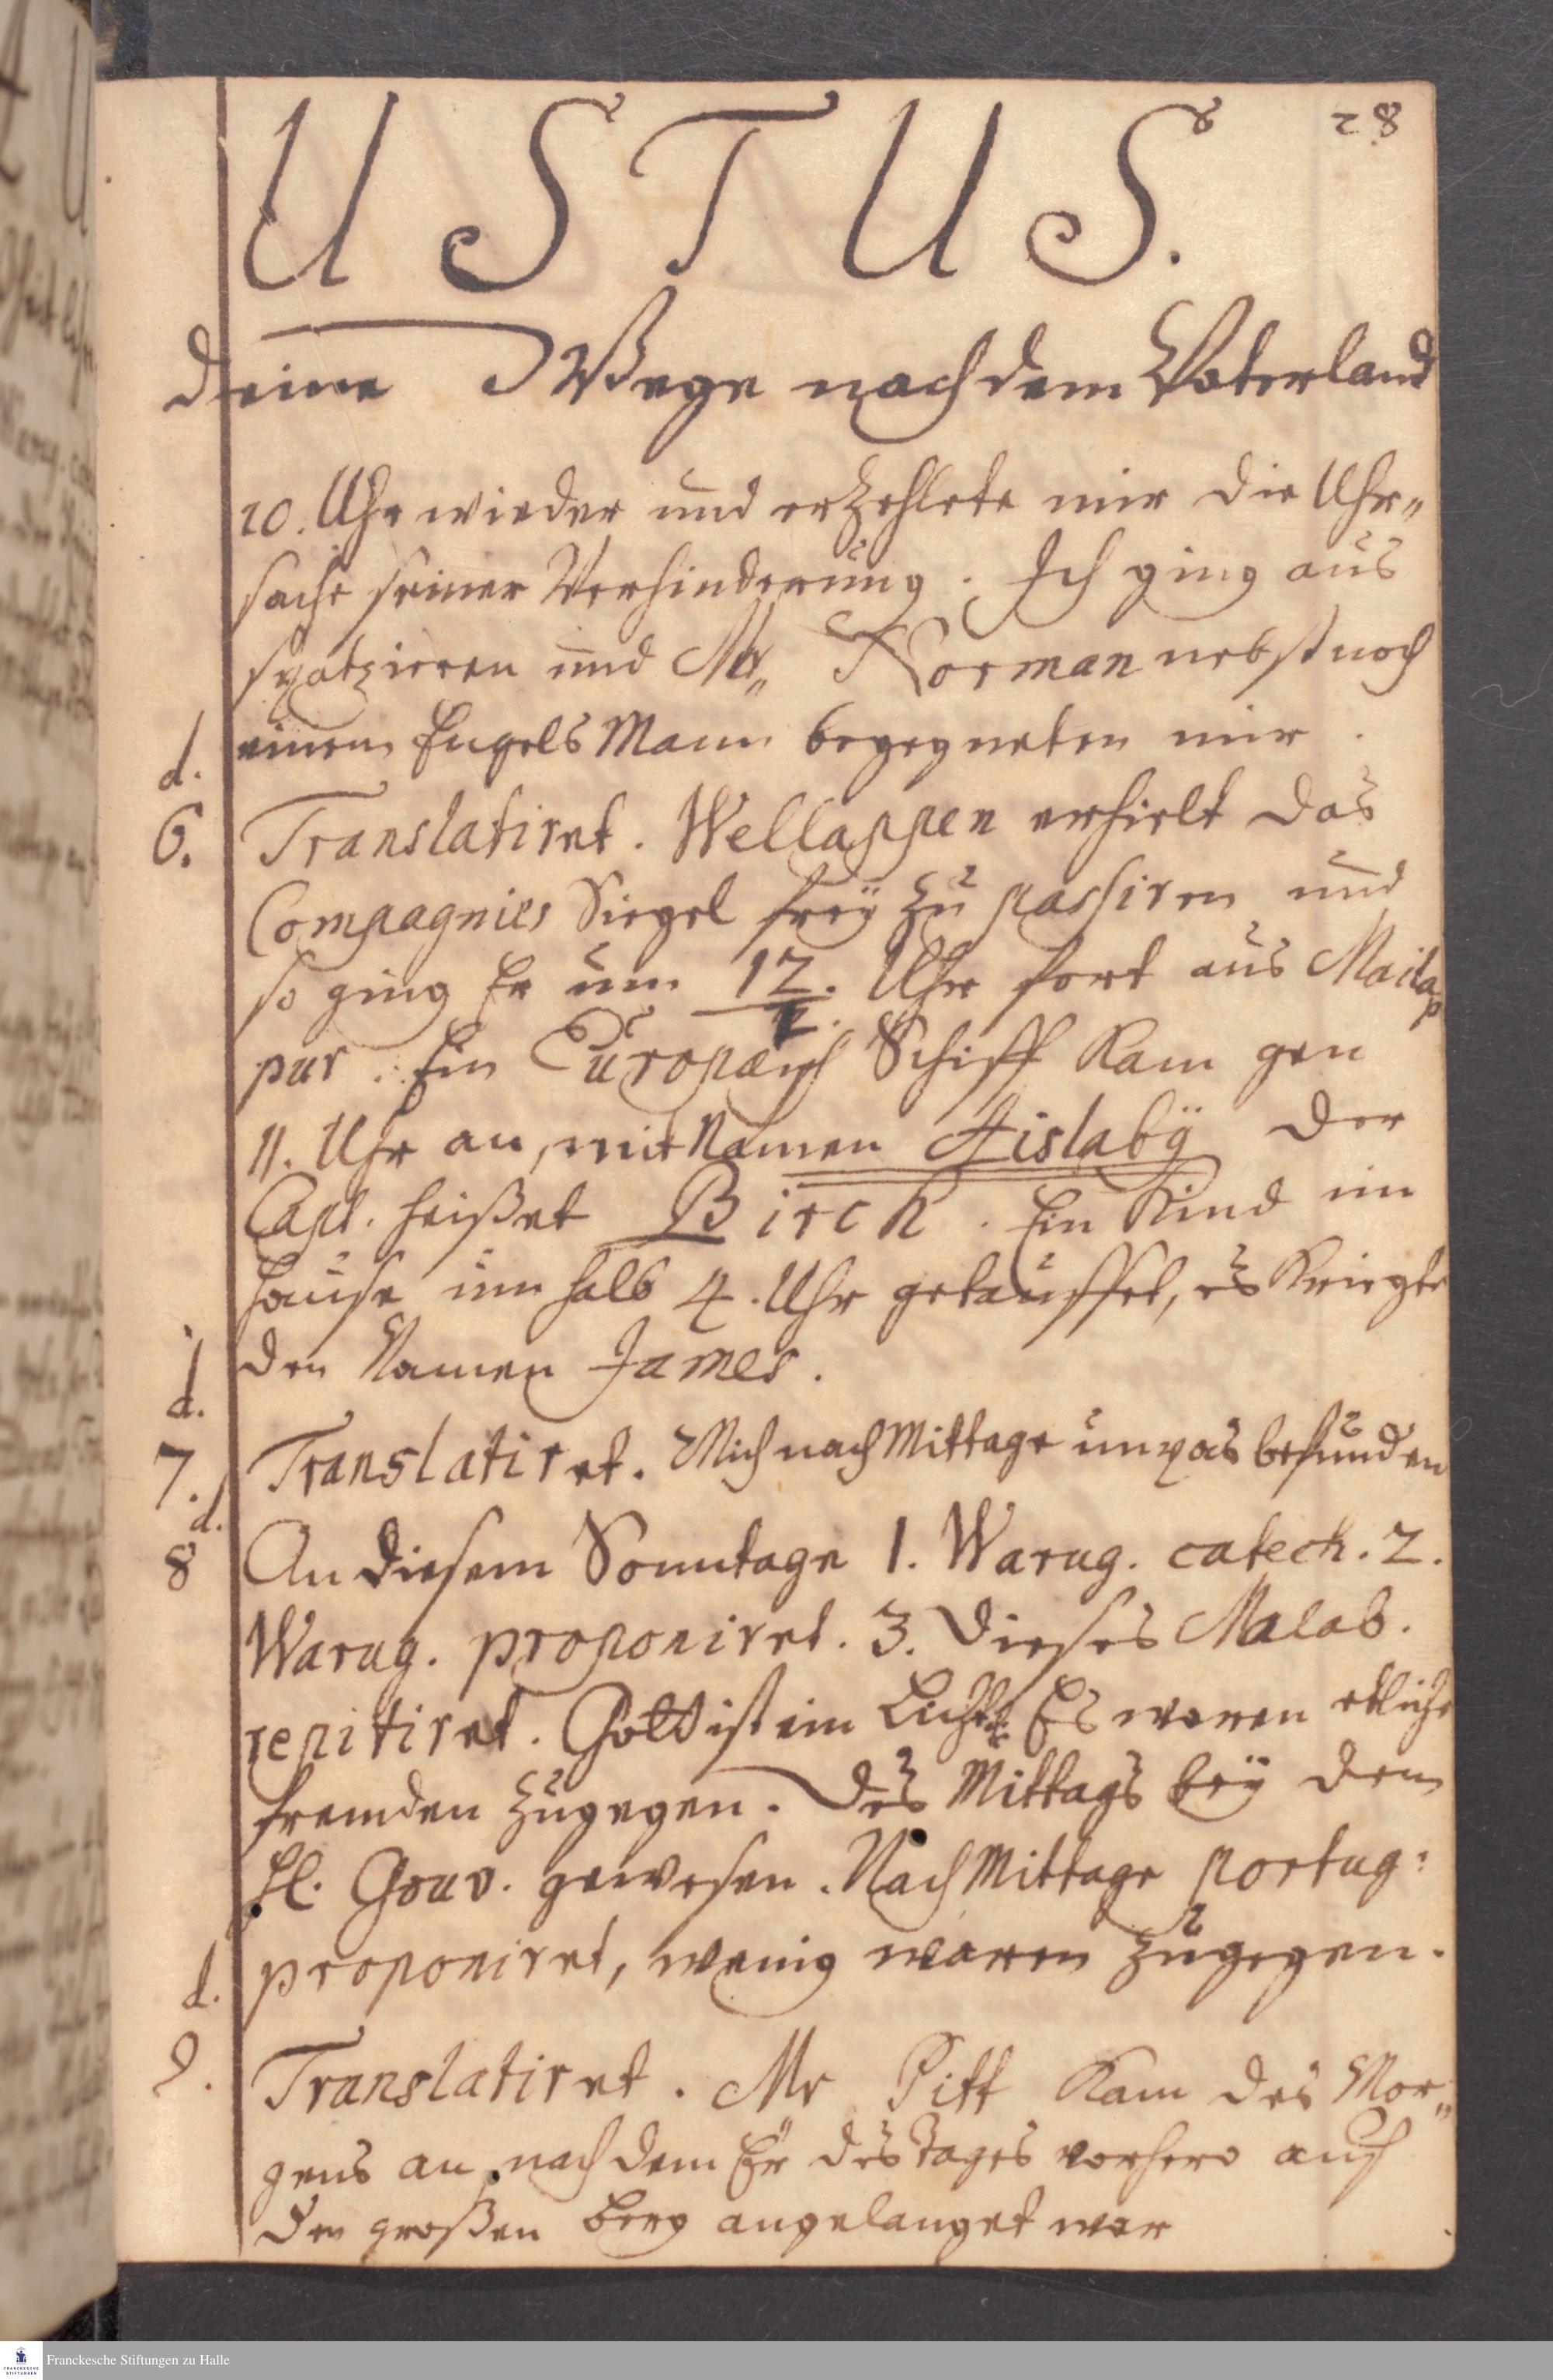 28
USTUS.
deine Wege nach dem Vaterland
10. Uhr wieder und erzehlete mir die Uhr„
sache seiner Verhinderung. Ich ging aus
spatzieren und Mr„ Norman nebst noch
d. einem Engels Mann begegneten mir.
6. Translatiret. Wellappen erhielt das
Compagnies Siegel frey zu passiren und
so ging Er um 12. Uhr fort aus Mailap
pur. Ein Europæisch Schiff kam gen
11. Uhr an, mit Namen Aislabÿ der
Capt. heißet Birch. Ein Kind im
Hause um halb 4. Uhr getauffet, es kriegte
d. den Namen James.
7. Translatiret. Mich nach Mittage unpas befunden
d.
8 An diesem Sonntage 1. Warug. catech. 2.
Warug. proponiret. 3. dieses Malab.
repitiret. Gott ist ein Licht Es waren etliche
fremden zugegen. Des Mittags beÿ dem
H. Gouv. gewesen. Nach Mittage portug:
d. proponiret, wenig waren zugegen.
9. Translatiret. Mr Pitt kam des Mor„
gens an nach dem Er des Tages vorhero auf
den großen berg angelanget war
Franckesche Stiftungen zu Halle